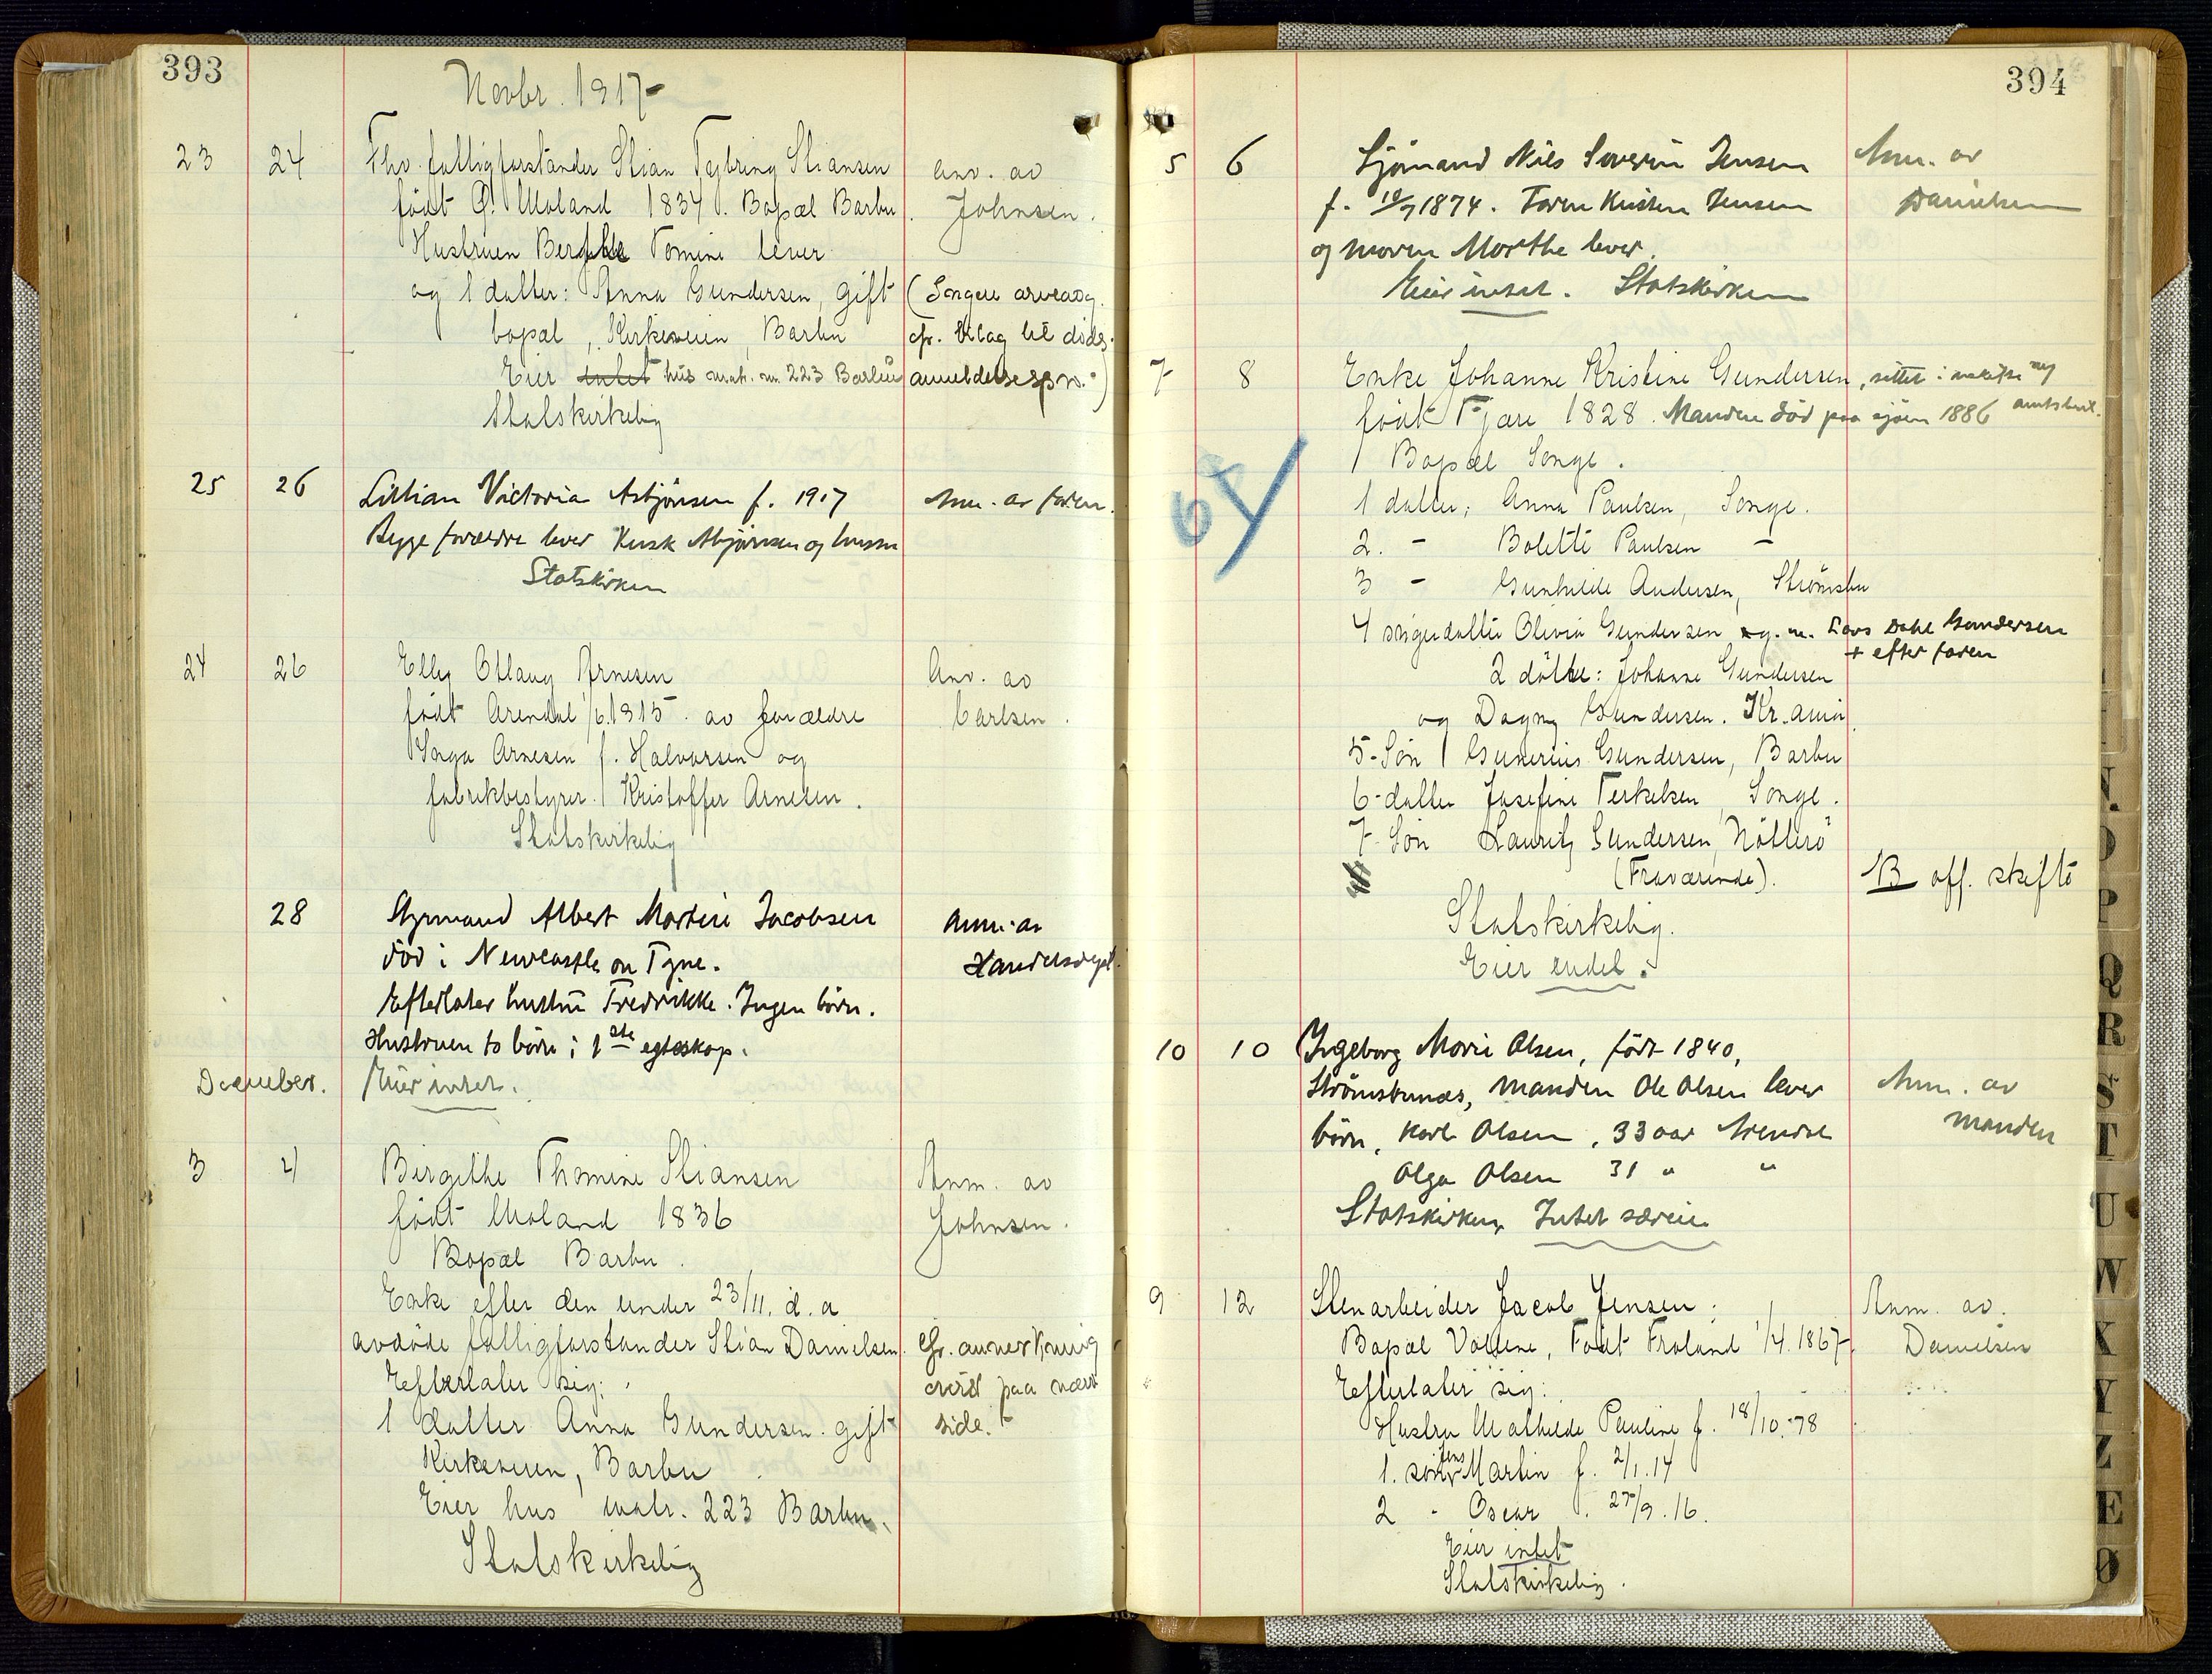 393
Novbr. 1917-
23 24 Fhv. fattigforstander Stian Stiansen anv. av
født Ø. Moland 1834. Bopæl Barbu. Johnsen.
Hustruen Bergitte Tomine lever
og 1 datter: Anna Gundersen, gift (Ingen
bopæl, Kirkeveien, Barbu cfr. til døds-
Eier intet hus mat. nr. 223 Barbu anmeldelsesp.)
Statskirkelig
25 26 Lillian Victoria Asbjönsen f. 1917 Anm. av faren.
Begge forældre lever Kusk Asbjörnsen og hustru
Statskirken
24 26 Elly Otlaug Arnesen Anv. av
født Arendal 1/6.1915 av forældre Carlsen.
Arnesen f. Halvorsen og
fabrikbestyrer Kristoffer Arnesen.
Statskirkelig
28 Styrmand Albert Martin Jacobsen Anm. av
död i Newcastle on Tyne.
Efterlater hustru Fredrikke. Ingen börn.
Hustruen to börn i 1ste egteskap.
December. Eier intet.
3 4 Birgithe Thomine Stiansen Anm. av
født Moland 1836 Johnsen.
Bopæl Barbu.
Enke efter den under 23/11. d. a
avdøde fattigforstander Stian Danielsen. Cfr.
Efterlater sig: øverst paa næst
1 datter Anna Gundersen. gift side.
Kirkeveien, Barbu
Eier hus matr. 223 Barbu.
Statskirkelig
394
5 6 Sjömand Nils Severin Jensen Anm. av
f. 10/7 1874. Faren Kristen Jensen Danielsen
og moren Marthe lever.
Eier intet. Statskirken
7 8 Enke Johanne Kristine Gundersen, sitter i
født Fjære 1828. Manden död paa sjöen 1886
Bopæl Songe.
1 datter, Anna Paulsen, Songe.
2. - Bolette Paulsen -
3 - Gunhilde Andersen, Strömsbu
4 Olivia Gundersen g. m. Lars Dahl Gundersen
+ efter faren
2 døttre: Johanne Gundersen
og Dagny Gundersen. Kr.ania
5-Søn Gunerius Gundersen, Barbu
6-datter Josefine Terkelsen, Songe.
7-Søn Lauritz Gundersen, Nötterö
(Fraværende). B off. skifte
Statskirkelig.
Eier endel.
10 10 Ingeborg Marie Olsen, född 1840,
Strömsbunes, manden Ole Olsen lever Anm. av
börn, Karl Olsen, 33 aar Arendal manden
Olga Olsen 31 " "
Statskirken Intet særeie
9 12 Stenarbeider Jacob Jensen. Anm. av.
Bopæl Vollene, Født Froland 1/4.1867. Danielsen
Efterlater sig:
Hustru Mathilde Pauline f. 18/10.-78
1. søn Jens Martin f. 2/1.14
2 - Oscar . 27/9.16.
Eier intet
Statskirkelig.
N.
O
P
Q
R
S
T
U
W
X
Y
Z
Æ
Ø